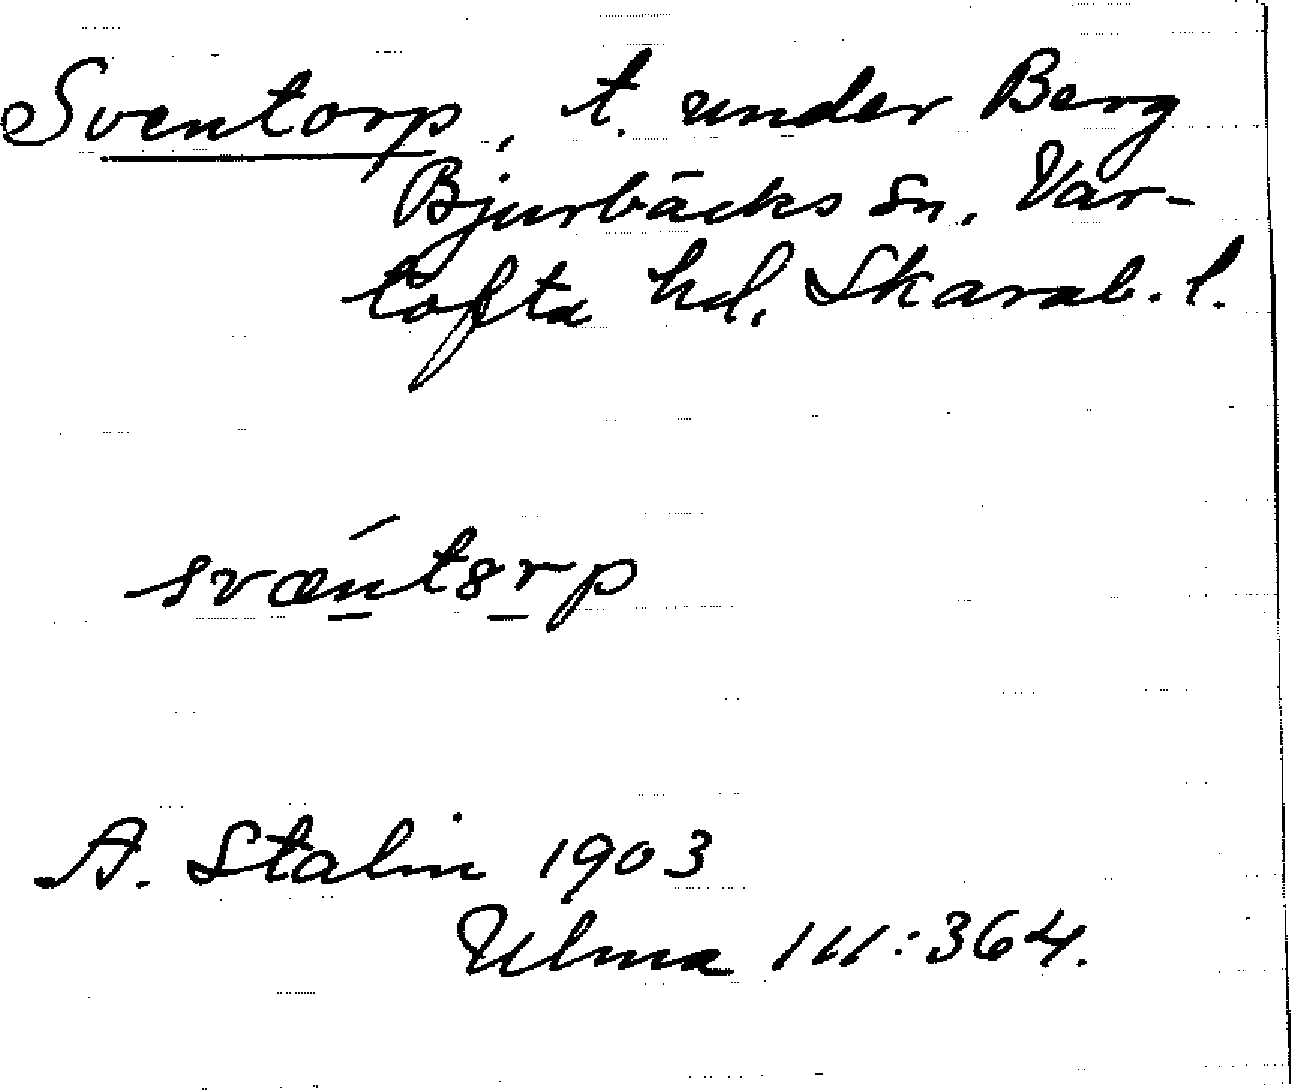 Sventorp, t. under Berg
Bjurbäcks sn, Var-
tofta hd, Skarab. l.
svæntsrp
A. Stalin 1903
Ulma 111:364.